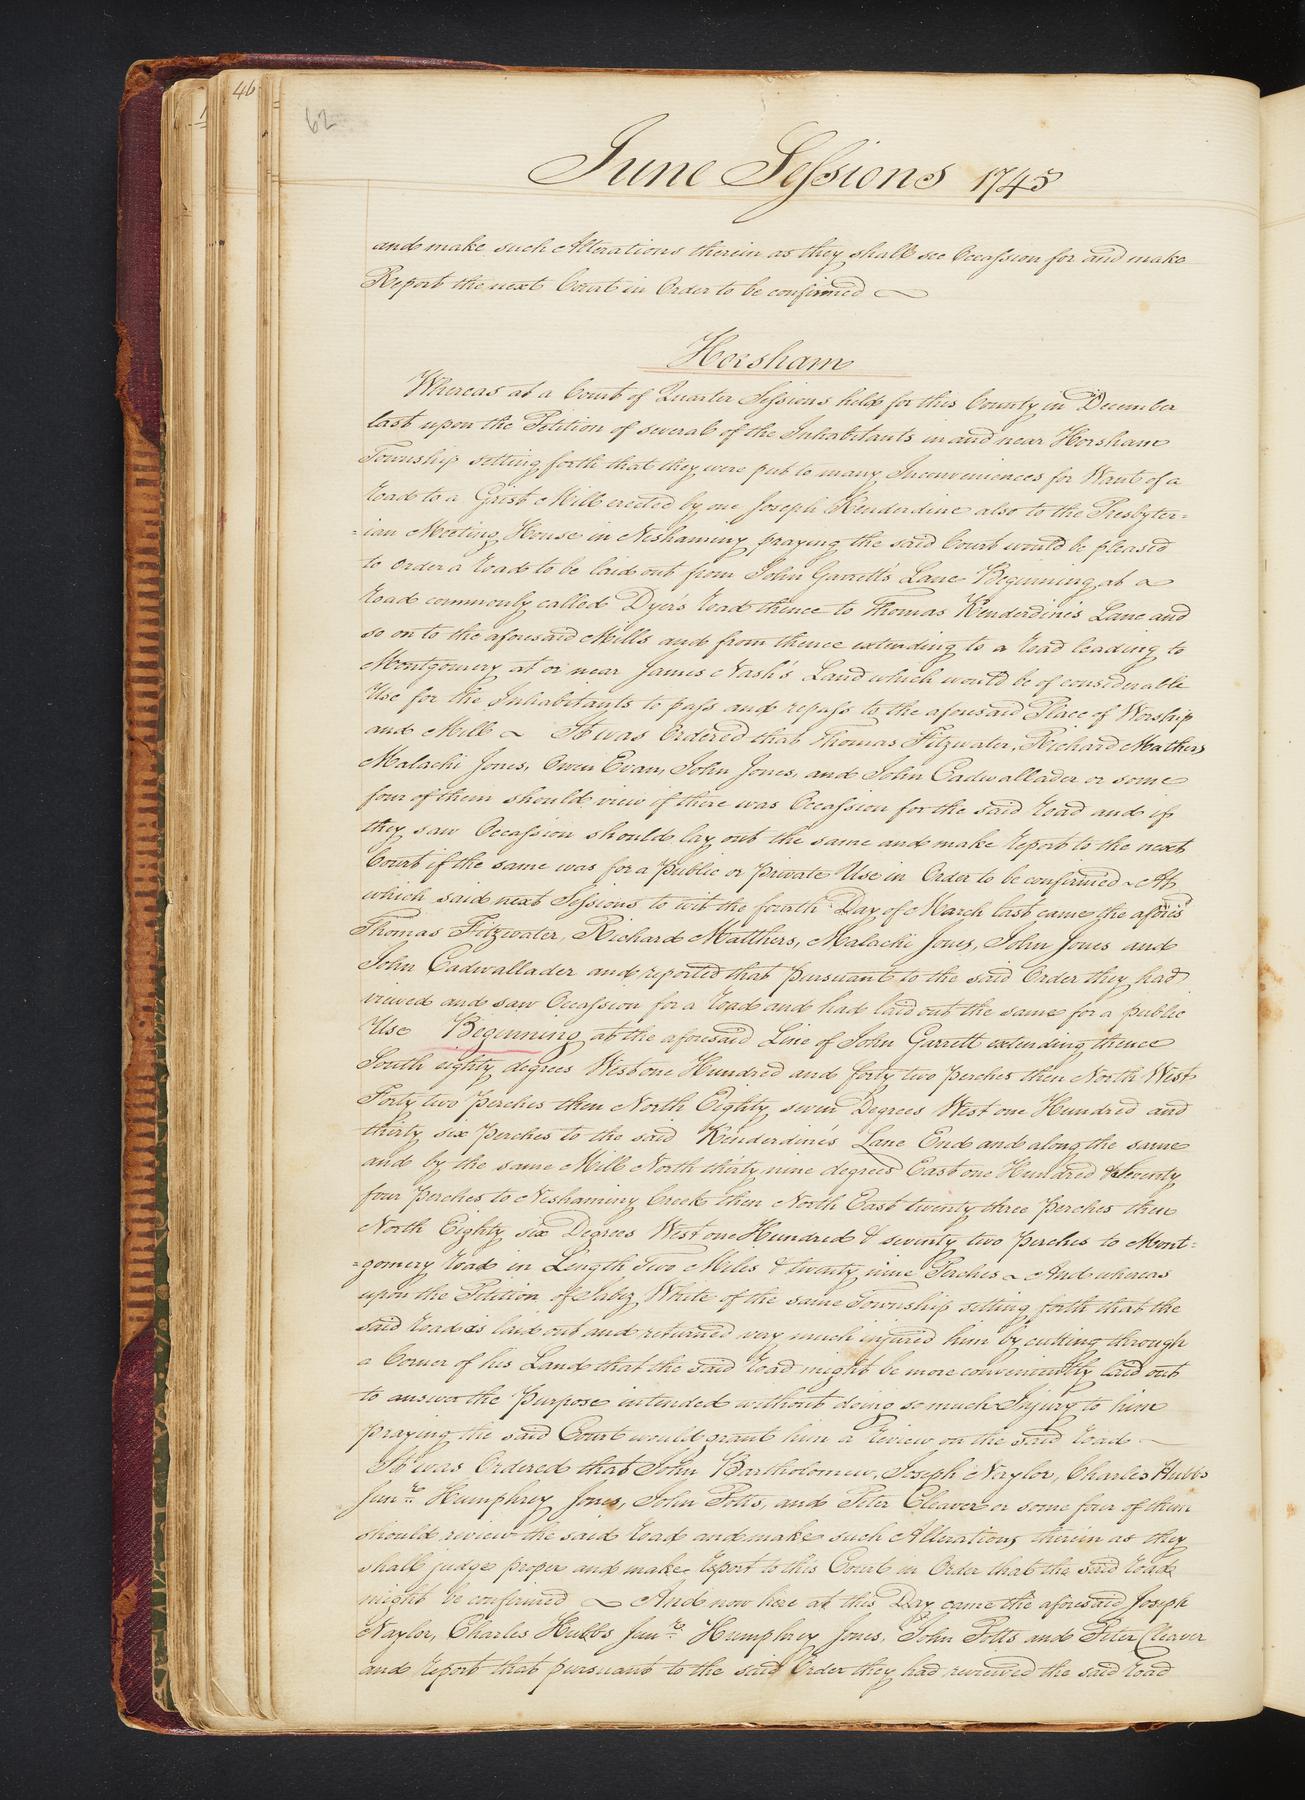 46
62
June Sessions 1745
and make such Alterations therein as they shall see Occassion for and make
Report the next Court in Order to be confirmed
Horsham
Whereas at a Court of Quarter Sessions held for this County in December
last upon the Petition of several of the Inhabitants in and near Horsham
Township setting forth that they were put to many Inconveniences for Want of a
road to a Grist Mill erected by one Joseph Kenderdine also to the Presbyter=
=ian Meeting House in Neshaminy praying the said Court would be pleased
to order a road to be laid out from John Garrett's Lane Beginning at a
road commonly called Dyer's road thence to Thomas Kenderdine's Lane and
so on to the aforesaid Mills and from thence extending to a road leading to
Montgomery at or near James Nash's Land which would be of considerable
Use for the Inhabitants to pass and repass to the aforesaid Place of Worship
and Mill ~ It was Ordered that Thomas Fitzwater, Richard Mathers
Malachi Jones, Owen Evan, John Jones, and John Cadwallader or some
four of them should view if there was Occassion for the said road and if
they saw Occassion should lay out the same and make report to the next
Court if the same was for a public or private Use in Order to be confirmed ~ At
which said next Sessions to wit the fourth Day of March last came the afores'd
Thomas Fitzwater, Richard Matthers, Malachi Jones, John Jones and
John Cadwallader and reported that pursuant to the said Order they had
viewed and saw Occassion for a road and had laid out the same for a public
Use Beginning at the aforesaid Line of John Garrett extending thence
South eighty degrees West one Hundred and forty two perches then North West
Forty two perches then North Eighty seven Degrees West one Hundred and
thirty six perches to the said Kenderdine's Lane End and along the same
and by the same Mill North thirty nine degrees East one Hundred & Seventy
four perches to Neshaminy Creek then North East twenty three perches then
North Eighty six Degrees West one Hundred & seventy two perches to Mont=
=gomery road in Length Two Miles & twenty nine Perches ~ And whereas
upon the Petition of Jabez White of the same Township setting forth that the
said road as laid out and returned very much injured him by cutting through
a Corner of his Land that the said road might be more conveniently laid out
to answer the purpose intended without doing so much Injury to him
praying the said Court would grant him a review on the said road ~
It was Ordered that John Bartholomew, Joseph Naylor, Charles Hubbs
Junre Humphrey Jones, John Potts, and Peter Cleaver or some four of them
should review the said road and make such Alterations therein as they
shall judge proper and make report to this Court in Order that the said road
might be confirmed ~ And now here at this Day came the aforesaid Joseph
Naylor, Charles Hubbs Junre Humphrey Jones, John Potts and Peter Cleaver
and report that pursuant to the said Order they had reviewed the said road